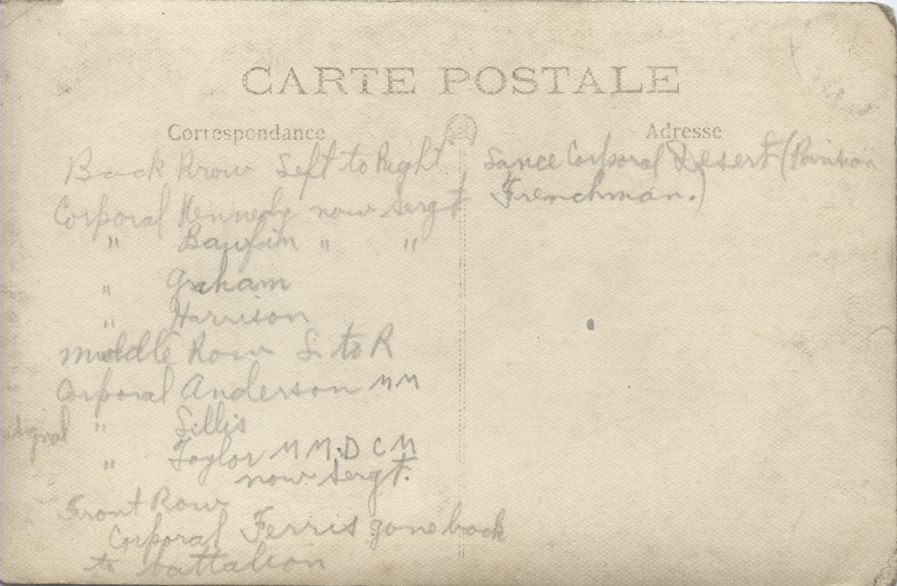 CARTE POSTALE
Correspondance
Adresse
Back Row Left to Right
Corporal Kennedy now Sergt
" " "
" Graham
" Harrison
Middle Row L to R
Corporal Anderson MM
" Lillis
" Taylor M M. D C M
now Sergt.
Front Row
Corporal Ferris gone back
to battalion
Lance Corporal Desert (Parisian
Frenchman.)